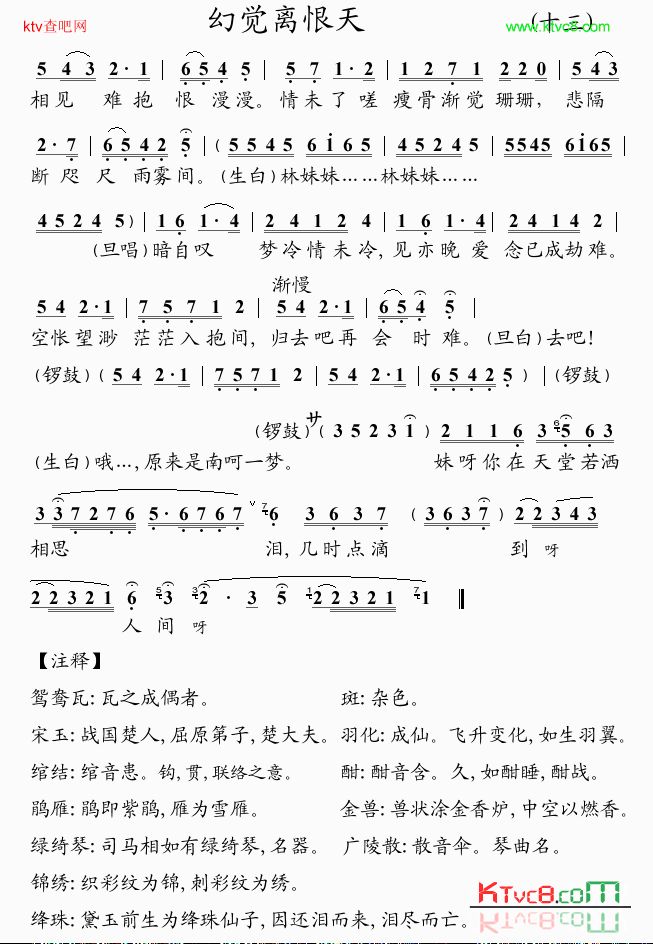 ktv查吧网 幻觉离恨天 (十三) www.ktvc8.com
5 4 3 2·1 | 6 5 4 5 | 5 7 1·2 | 1 2 7 1 2 2 0 | 5 4 3
相见 难抱 恨 漫漫。情未了嗟 瘦骨渐觉 珊珊, 悲隔
2·7 | 6 5 4 2 5 | (5 5 4 5 6 i 6 5 | 4 5 2 4 5 | 5545 6i65 |
断 咫 尺 雨雾间。(生白)林妹妹……林妹妹……
4 5 2 4 5) | 1 6 1·4 | 2 4 1 2 4 | 1 6 1·4 | 2 4 1 4 2 |
(旦唱)暗自叹 梦冷情未冷, 见亦晚爱 念已成劫难。
渐慢
5 4 2·1 | 7 5 7 1 2 | 5 4 2·1 | 6 5 4 5 |
空怅望渺 茫茫入抱间, 归去吧再 会 时难。(旦白)去吧!
(锣鼓)(5 4 2·1 | 7 5 7 1 2 | 5 4 2·1 | 6 5 4 2 5) | (锣鼓)
(锣鼓)サ(3 5 2 3 1) 2 1 1 6 3 6 5 6 3
(生白)哦…, 原来是南呵一梦。 妹呀你在天堂若洒
3 3 7 2 7 6 5·6 7 6 7 ∨ 7 6 3 6 3 7 (3 6 3 7) 2 2 3 4 3
相思 泪, 几时点滴 到 呀
2 2 3 2 1 6 5 3 3 2· 3 5 1 2 2 3 2 1 7 1
人 间 呀
【注释】
鸳鸯瓦: 瓦之成偶者。 斑: 杂色。
宋玉: 战国楚人, 屈原第子, 楚大夫。 羽化: 成仙。飞升变化, 如生羽翼。
绾结: 绾音患。钩, 贯, 联络之意。 酣: 酣音含。久, 如酣睡, 酣战。
鹃雁: 鹃即紫鹃, 雁为雪雁。 金兽: 兽状涂金香炉, 中空以燃香。
绿绮琴: 司马相如有绿绮琴, 名器。 广陵散: 散音伞。琴曲名。
锦绣: 织彩纹为锦, 刺彩纹为绣。
绛珠: 黛玉前生为绛珠仙子, 因还泪而来, 泪尽而亡。
KTvc8.com